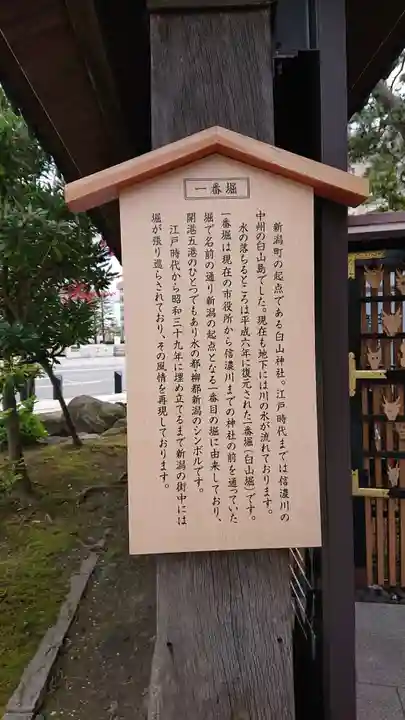 一番堀
新潟町の起点である白山神社。江戸時代までは信濃川の
中州の白山島でした。現在も地下には川の水が流れております。
水の落ちるところは平成六年に復元された一番堀(白山堀)です。
一番堀は現在の市役所から信濃川までの神社の前を通っていた
堀で名前の通り新潟の起点となる一番目の堀に由来しており、
開港五港のひとつでもあり水の都柳都新潟のシンボルです。
江戸時代から昭和三十九年に埋め立てるまで新潟の街中には
堀が張り巡らされており、その風情を再現しております。